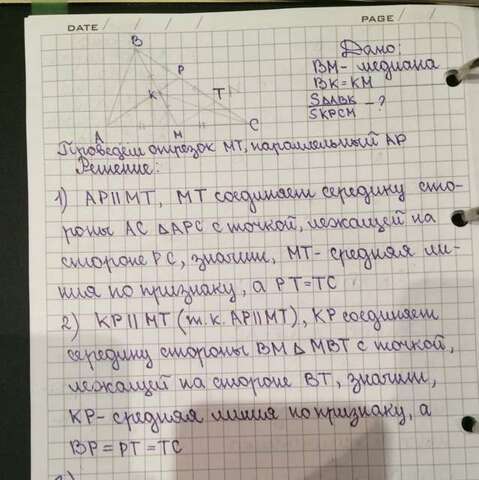 DATE / / PAGE /
B
P
K
T
A
M
C
Дано:
BM - медиана
BK = KM
SΔABK
SKPCM - ?
Проведем отрезок MT, параллельный AP
Решение:
1) AP || MT, MT соединяет середину сто-
роны AC Δ APC с точкой, лежащей на
стороне PC, значит, MT - средняя ли-
ния по признаку, а PT = TC
2) KP || MT (т.к. AP || MT), KP соединяет
середину стороны BM Δ MBT с точкой,
лежащей на стороне BT, значит,
KP - средняя линия по признаку, а
BP = PT = TC